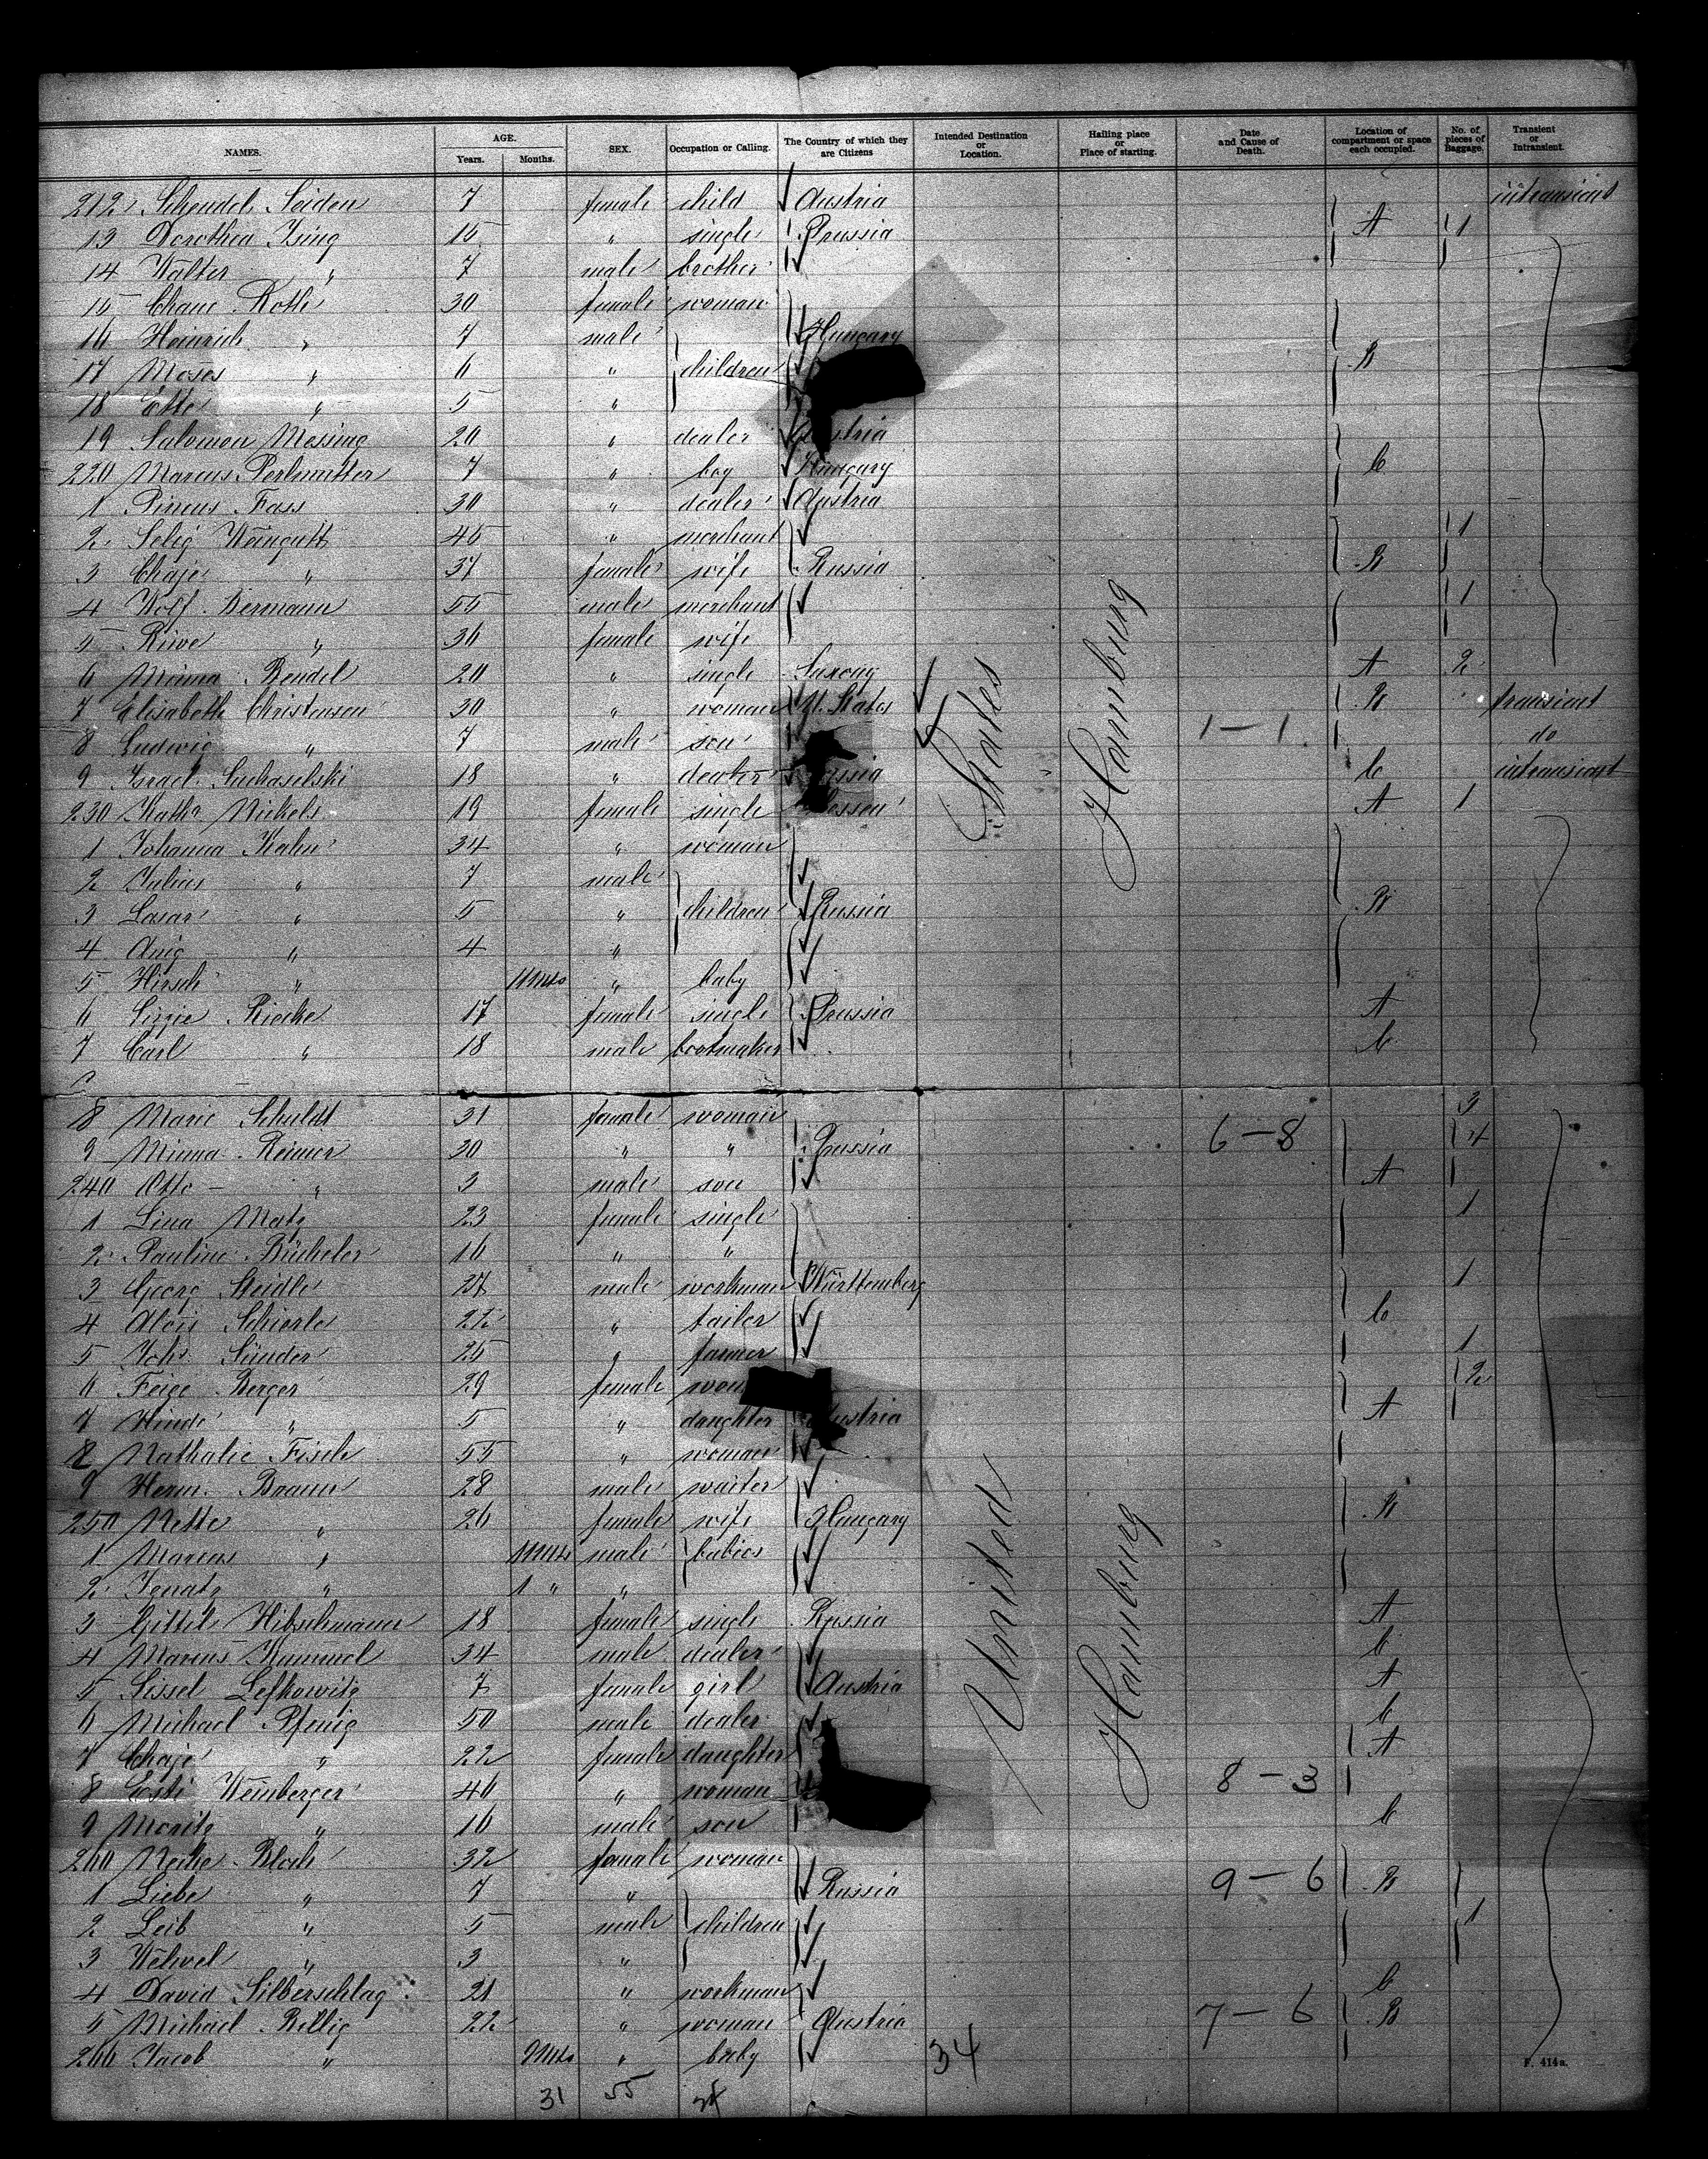 NAMES. AGE. Years. Months. SEX. Occupation or Calling. The Country of which they are Citizens Intended Destination or Location. Hailing place or Place of starting. Date and Cause of Death. Location of compartment or space each occupied. No. of pieces of Baggage. Transient or Intransient.
212 Scheindel Seiden 7 female child Austria intransient
13 Dorothea Ising 16 " single Prussia A 1
14 Walter " 7 male brother
15 Chane Roth 30 female woman
16 Heinrich " 7 male Hungary
17 Moses " 6 " children B
18 Ette " 5 "
19 Salomon Messing 20 " dealer
220 Marcus Perlmutter 7 " boy Hungary C
1 Pincus Fass 30 " dealer Austria
2 Selig Weingutt 45 " merchant 1
3 Chaje " 37 female wife Russia B
4 Wolf Bermann 55 male merchant 1
5 Riwe " 36 female wife
6 Minna Bendel 20 " single Saxony A 2
7 Elisabeth Christensen 30 " woman U. States B transient
8 Ludwig " 7 male son 1-1 do
9 Israel 18 " dealer C intransient
230 Kath. Nickels 19 female single A 1
1 Johanna Kahn 34 " woman
2 Julius " 7 male
3 Lasar " 5 " children Russia B
4 " 4 "
5 Hirsch " 11 Mts " baby
6 Riecke 17 female single Prussia A
7 Carl " 18 male bootmaker C
8 Marie Schuldt 31 female woman 3
9 Minna Reimer 30 " " Prussia 6-8 4
240 Otto " 3 male son A
1 Lina Metz 23 female single 1
2 Pauline Bücheler 16 " "
3 Georg Steidle 27 male workman Württemberg 1
4 Alois Schierle 22 " tailor C
5 Joh. Sünder 25 " farmer 1
6 Feige Berger 29 female 2
7 Hinde " 5 " daughter Austria A
8 Nathalie Fisch 55 " woman
9 Herm. Braun 28 male waiter
250 Nette " 26 female wife Hungary B
1 Marcus " 11 Mts male babies
2 Ignatz " 1 " "
3 Gittel Hibschmann 18 female single Russia A
4 Marcus Kammel 34 male dealer C
5 Sissel Lefkowitz 7 female girl Austria A
6 Michael Pfenig 50 male dealer C
7 Chaje " 22 female daughter A
8 Esti Weinberger 40 " woman 8-3
9 Moritz " 16 male son C
260 Bloch 32 female woman
1 Liebe " 7 " Russia 9-6 B
2 Leib " 5 male children 1
3 Welwel " 3 "
4 David Silberschlag 21 " workman C
5 Michael Billig 22 " woman Austria 7-6 B
266 Jacob " 9 Mts " baby 34
United States
Hamburg
Hamburg
31 55
F. 414a.